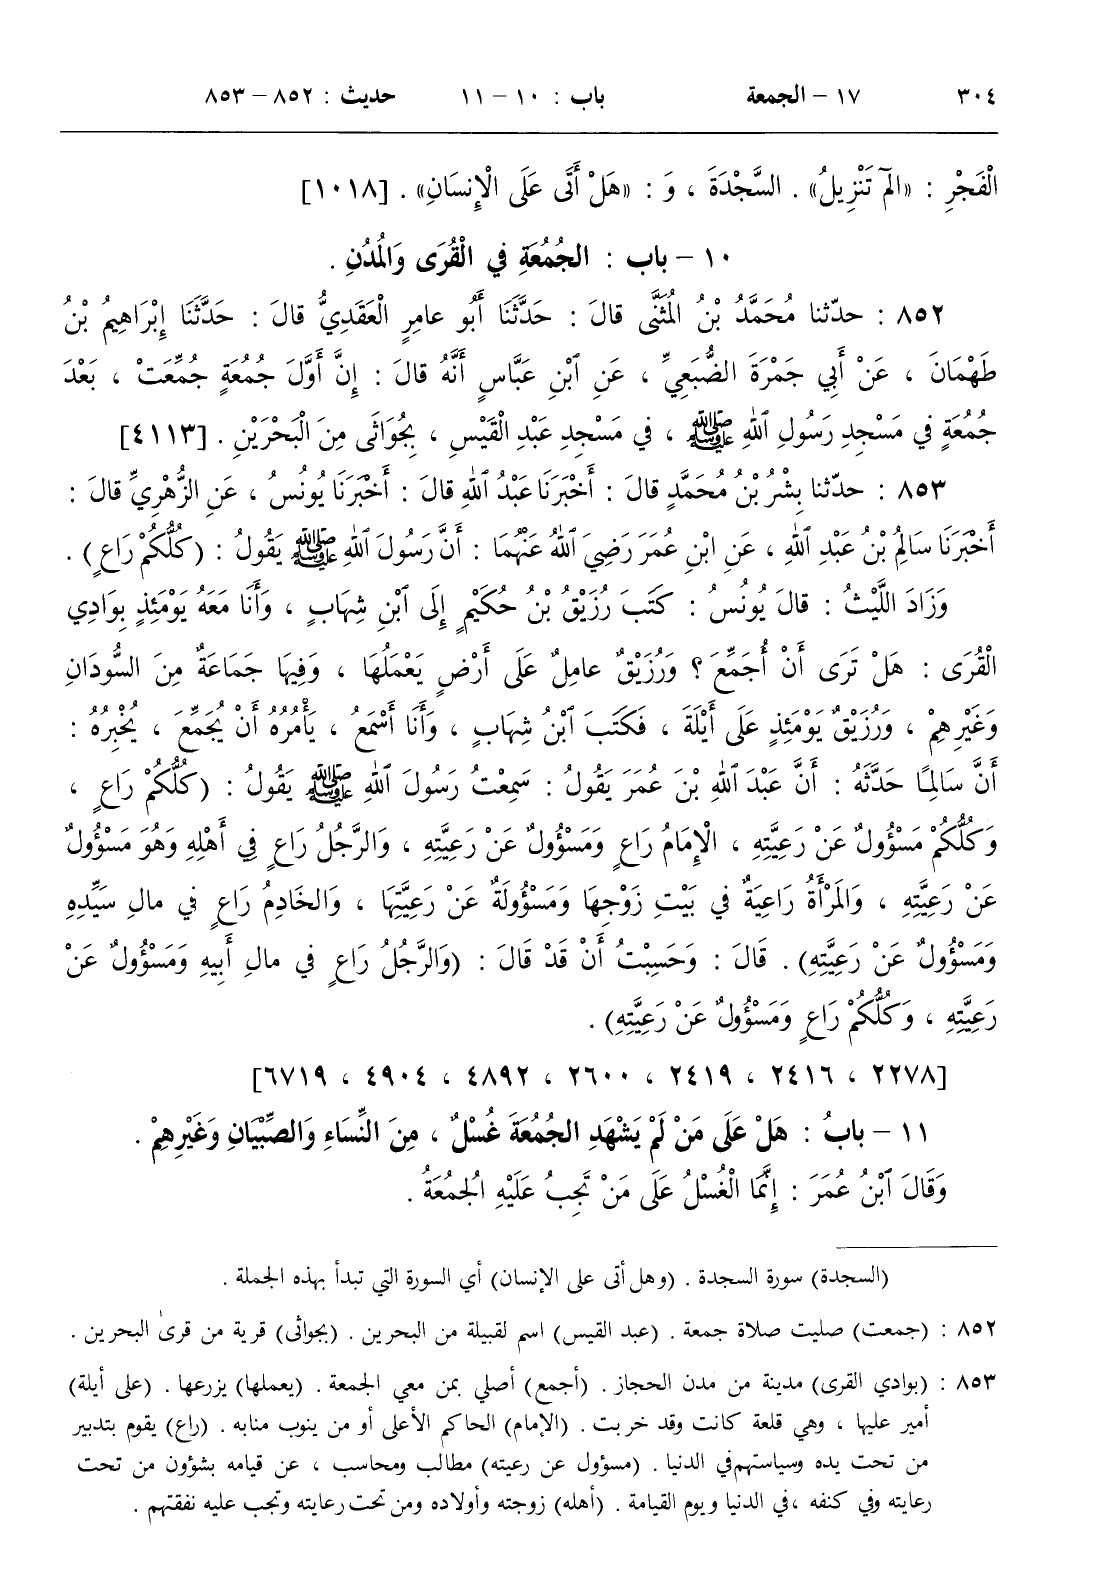 ٣٠٤ ١٧ - الجمعة باب : ١٠ - ١١ حديث : ٨٥٢ - ٨٥٣
الْفَجْرِ : «الٓمٓ تَنْزِيلُ» . السَّجْدَةَ ، وَ : «هَلْ أَتَى عَلَى الْإِنسَانِ» . [١٠١٨]
١٠ - باب : الجُمُعَةِ فِي الْقُرَى وَالْمُدُنِ .
٨٥٢ : حدّثنا مُحَمَّدُ بْنُ الْمُثَنَّى قالَ : حَدَّثَنَا أَبُو عامِرٍ الْعَقَدِيُّ قالَ : حَدَّثَنَا إِبْرَاهِيمُ بْنُ
طَهْمَانَ ، عَنْ أَبِي جَمْرَةَ الضُّبَعِيِّ ، عَنِ ٱبْنِ عَبَّاسٍ أَنَّهُ قالَ : إِنَّ أَوَّلَ جُمُعَةٍ جُمِّعَتْ ، بَعْدَ
جُمُعَةٍ فِي مَسْجِدِ رَسُولِ ٱللهِ ﷺ ، فِي مَسْجِدِ عَبْدِ الْقَيْسِ ، بِجُوَاثَى مِنَ الْبَحْرَيْنِ . [٤١١٣]
٨٥٣ : حدّثنا بِشْرُ بْنُ مُحَمَّدٍ قالَ : أَخْبَرَنَا عَبْدُ ٱللهِ قالَ : أَخْبَرَنَا يُونُسُ ، عَنِ الزُّهْرِيِّ قالَ :
أَخْبَرَنَا سَالِمُ بْنُ عَبْدِ ٱللهِ ، عَنِ ابْنِ عُمَرَ رَضِيَ ٱللهُ عَنْهُمَا : أَنَّ رَسُولَ ٱللهِ ﷺ يَقُولُ : (كُلُّكُمْ رَاعٍ) .
وَزَادَ اللَّيْثُ : قالَ يُونُسُ : كَتَبَ رُزَيْقُ بْنُ حُكَيْمٍ إِلَى ٱبْنِ شِهَابٍ ، وَأَنَا مَعَهُ يَوْمَئِذٍ بِوَادِي
الْقُرَى : هَلْ تَرَى أَنْ أُجَمِّعَ ؟ وَرُزَيْقٌ عامِلٌ عَلَى أَرْضٍ يَعْمَلُهَا ، وَفِيهَا جَمَاعَةٌ مِنَ السُّودَانِ
وَغَيْرِهِمْ ، وَرُزَيْقٌ يَوْمَئِذٍ عَلَى أَيْلَةَ ، فَكَتَبَ ٱبْنُ شِهَابٍ ، وَأَنَا أَسْمَعُ ، يَأْمُرُهُ أَنْ يُجَمِّعَ ، يُخْبِرُهُ :
أَنَّ سَالِمًا حَدَّثَهُ : أَنَّ عَبْدَ ٱللهِ بْنَ عُمَرَ يَقُولُ : سَمِعْتُ رَسُولَ ٱللهِ ﷺ يَقُولُ : (كُلُّكُمْ رَاعٍ ،
وَكُلُّكُمْ مَسْؤُولٌ عَنْ رَعِيَّتِهِ ، الْإِمَامُ رَاعٍ وَمَسْؤُولٌ عَنْ رَعِيَّتِهِ ، وَالرَّجُلُ رَاعٍ فِي أَهْلِهِ وَهُوَ مَسْؤُولٌ
عَنْ رَعِيَّتِهِ ، وَالْمَرْأَةُ رَاعِيَةٌ فِي بَيْتِ زَوْجِهَا وَمَسْؤُولَةٌ عَنْ رَعِيَّتِهَا ، وَالخَادِمُ رَاعٍ فِي مالِ سَيِّدِهِ
وَمَسْؤُولٌ عَنْ رَعِيَّتِهِ) . قَالَ : وَحَسِبْتُ أَنْ قَدْ قَالَ : (وَالرَّجُلُ رَاعٍ فِي مالِ أَبِيهِ وَمَسْؤُولٌ عَنْ
رَعِيَّتِهِ ، وَكُلُّكُمْ رَاعٍ وَمَسْؤُولٌ عَنْ رَعِيَّتِهِ) .
[٢٢٧٨ ، ٢٤١٦ ، ٢٤١٩ ، ٢٦٠٠ ، ٤٨٩٢ ، ٤٩٠٤ ، ٦٧١٩]
١١ - بابُ : هَلْ عَلَى مَنْ لَمْ يَشْهَدِ الجُمُعَةَ غُسْلٌ ، مِنَ النِّسَاءِ وَالصِّبْيَانِ وَغَيْرِهِمْ .
وَقَالَ ٱبْنُ عُمَرَ : إِنَّمَا الْغُسْلُ عَلَى مَنْ تَجِبُ عَلَيْهِ الْجُمُعَةُ .
(السجدة) سورة السجدة . (وهل أتى على الإنسان) أي السورة التي تبدأ بهذه الجملة .
٨٥٢ : (جمعت) صليت صلاة جمعة . (عبد القيس) اسم لقبيلة من البحرين . (بجواثى) قرية من قرى البحرين .
٨٥٣ : (بوادي القرى) مدينة من مدن الحجاز . (أجمع) أصلي بمن معي الجمعة . (يعملها) يزرعها . (على أيلة)
أمير عليها ، وهي قلعة كانت وقد خربت . (الإمام) الحاكم الأعلى أو من ينوب منابه . (راع) يقوم بتدبير
من تحت يده وسياستهم في الدنيا . (مسؤول عن رعيته) مطالب ومحاسب ، عن قيامه بشؤون من تحت
رعايته وفي كنفه ، في الدنيا ويوم القيامة . (أهله) زوجته وأولاده ومن تحت رعايته وتجب عليه نفقتهم .